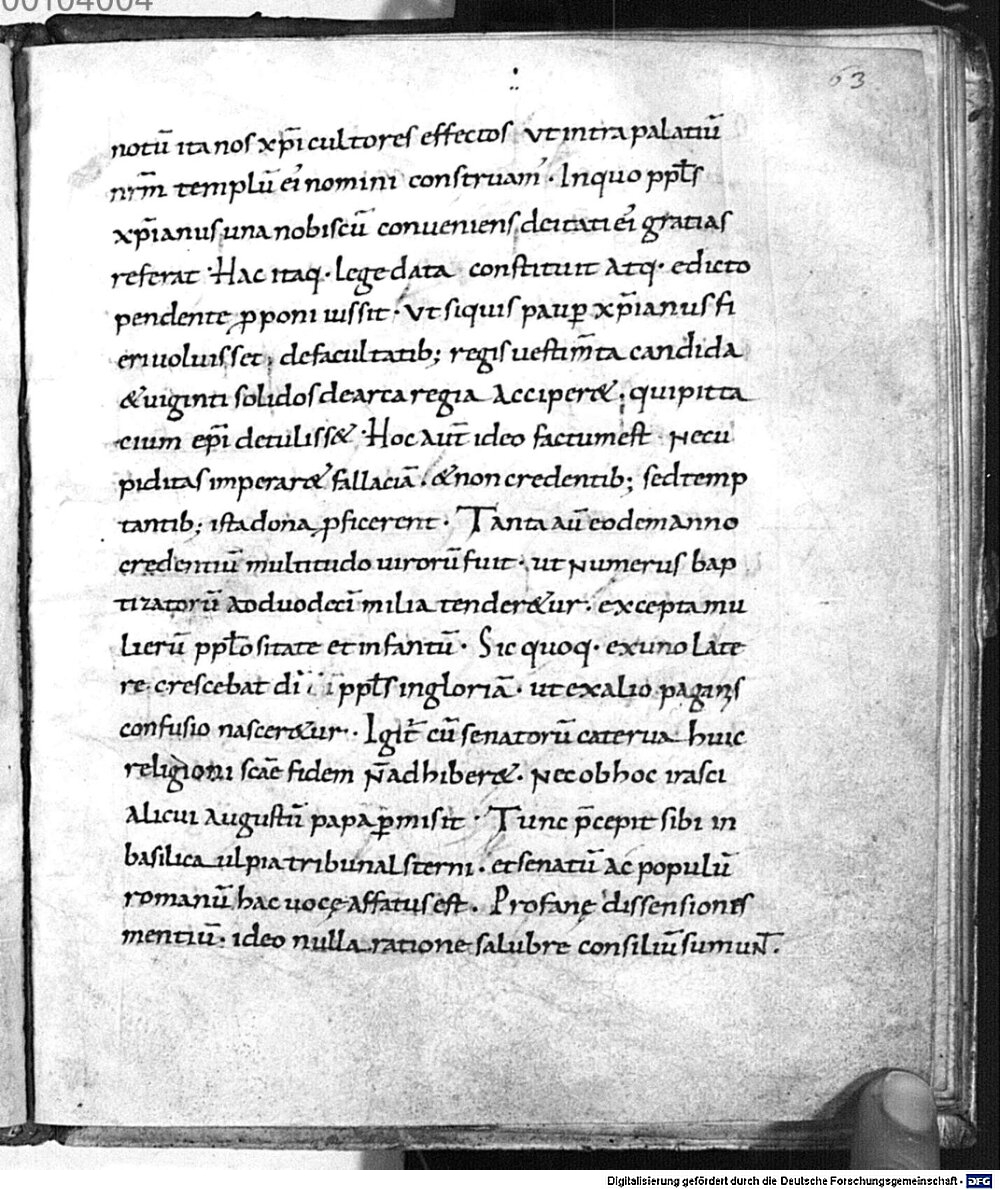 00104004
63
notū ita nos xp̄i cultores effectos ut intra palatiū
nr̄m templū ei nomini construam · Inquo ppl̄s
xp̄ianus una nobiscū conueniens deitati ei gratias
referat · Hac itaq· lege data constituit atq· edicto
pendente ꝓponi iussit · ut siquis paup̱ xp̄ianus fi
eri uoluisset; de facultatib; regis uestim̄ta candida
&uiginti solidos de arca regia acciper&· qui pitta
cium ep̄i detuliss& · Hoc aut̄ ideo factum est · ne cu
piditas imperar& fallaciā · & non credentib; sed temp
tantib; ista dona ꝓficerent · Tanta aū eodem anno
credentiū multitudo uirorū fuit · ut numerus bap
tizatorū ad duodecī milia tender&ur · excepta mu
lierū ppl̄ositate et infantū · Sic quoq· ex uno late
re crescebat di ppl̄s in gloriā · ut ex alio paganis
confusio nascer&ur · Igit̄ cū senatorū caterua huic
religioni sc̄ae fidem n̄ adhiber& · nec ob hoc irasci
alicui augustū papa ꝑmisit · Tunc p̄cepit sibi in
basilica ulpia tribunal sterni · et senatū ac populū
romanū hac uoce affatus est · Profanę dissensiones
mentiū · ideo nulla ratione salubre consiliū sumunt̄ ·
Digitalisierung gefördert durch die Deutsche Forschungsgemeinschaft - DFG